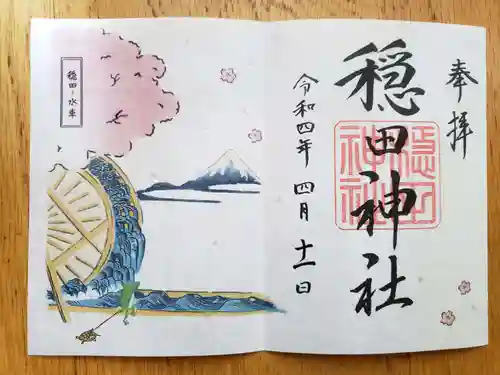 奉拝
穏田神社
穏田神社
令和四年 四月 十一日
穏田ノ水車